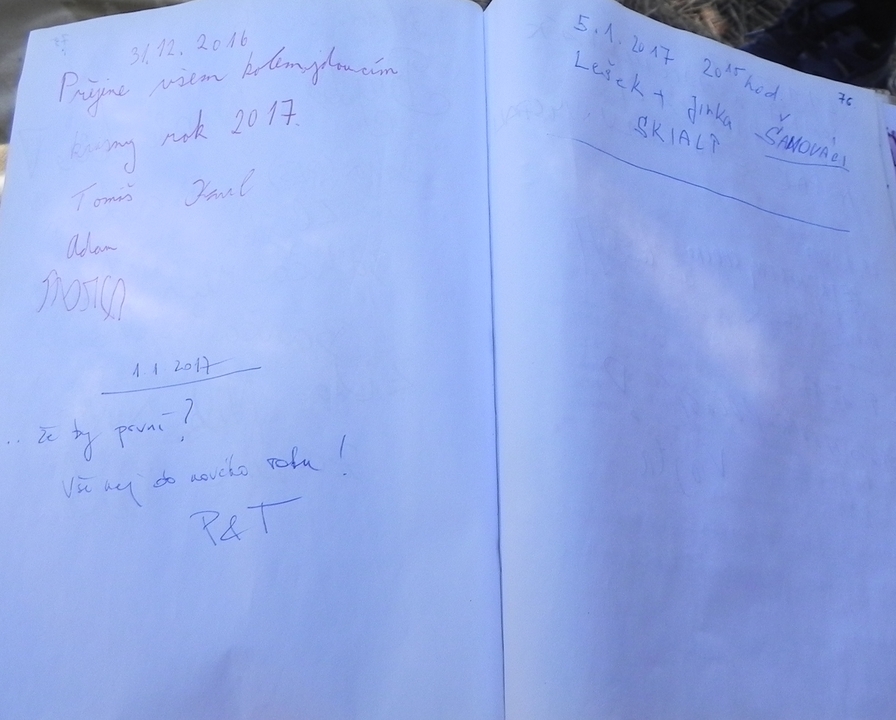 31.12. 2016
Přejme všem kolemjdoucím
krásný rok 2017.
Tomáš Karel
Adam
1.1 2017
.. že by první?
Vše nej do nového roku!
P&T
76
5.1.2017 20¹⁵ hod
Lešek + Jirka
SKIALP ŠAMOVÁCI